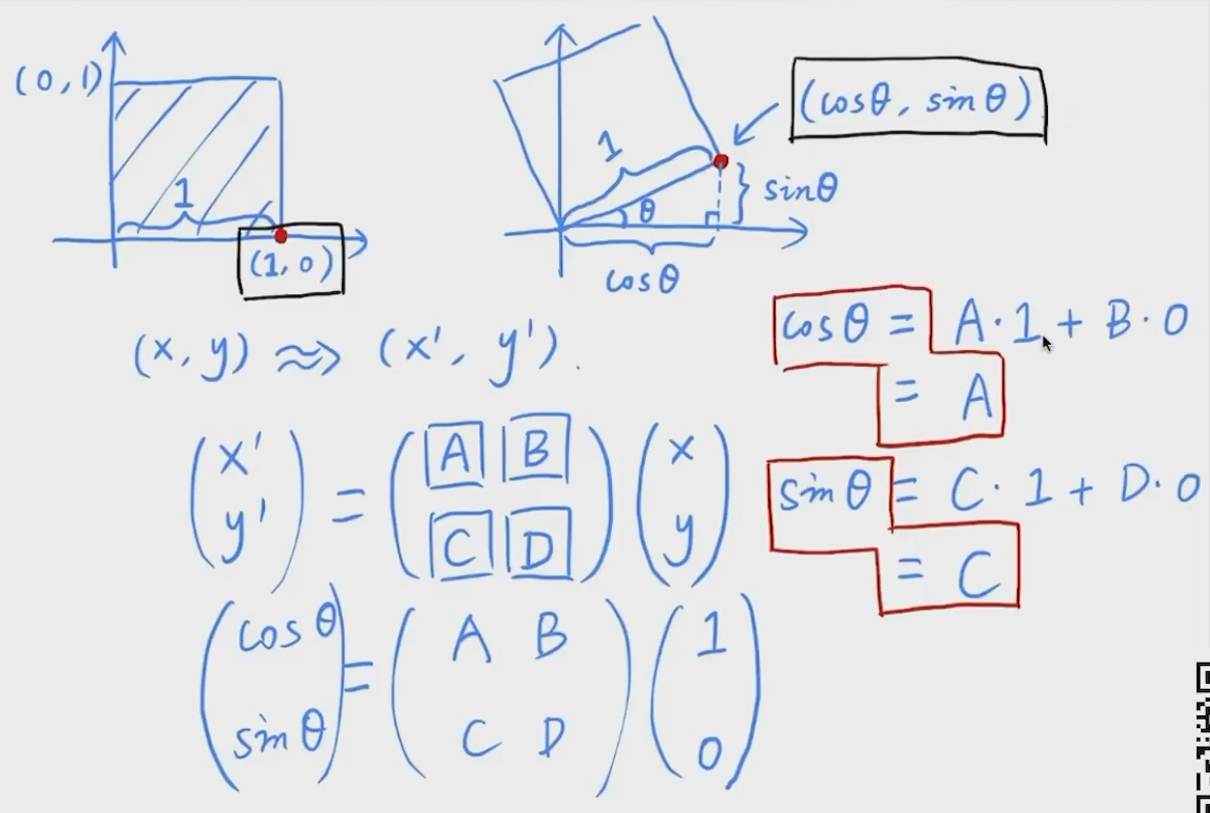 (0,1)
1
(1,0)
(cosθ, sinθ)
1
θ
sinθ
cosθ
(x, y) ⇝ (x', y').
(x' y') = (A B C D) (x y)
(cosθ sinθ) = (A B C D) (1 0)
cosθ = A·1 + B·0
= A
sinθ = C·1 + D·0
= C